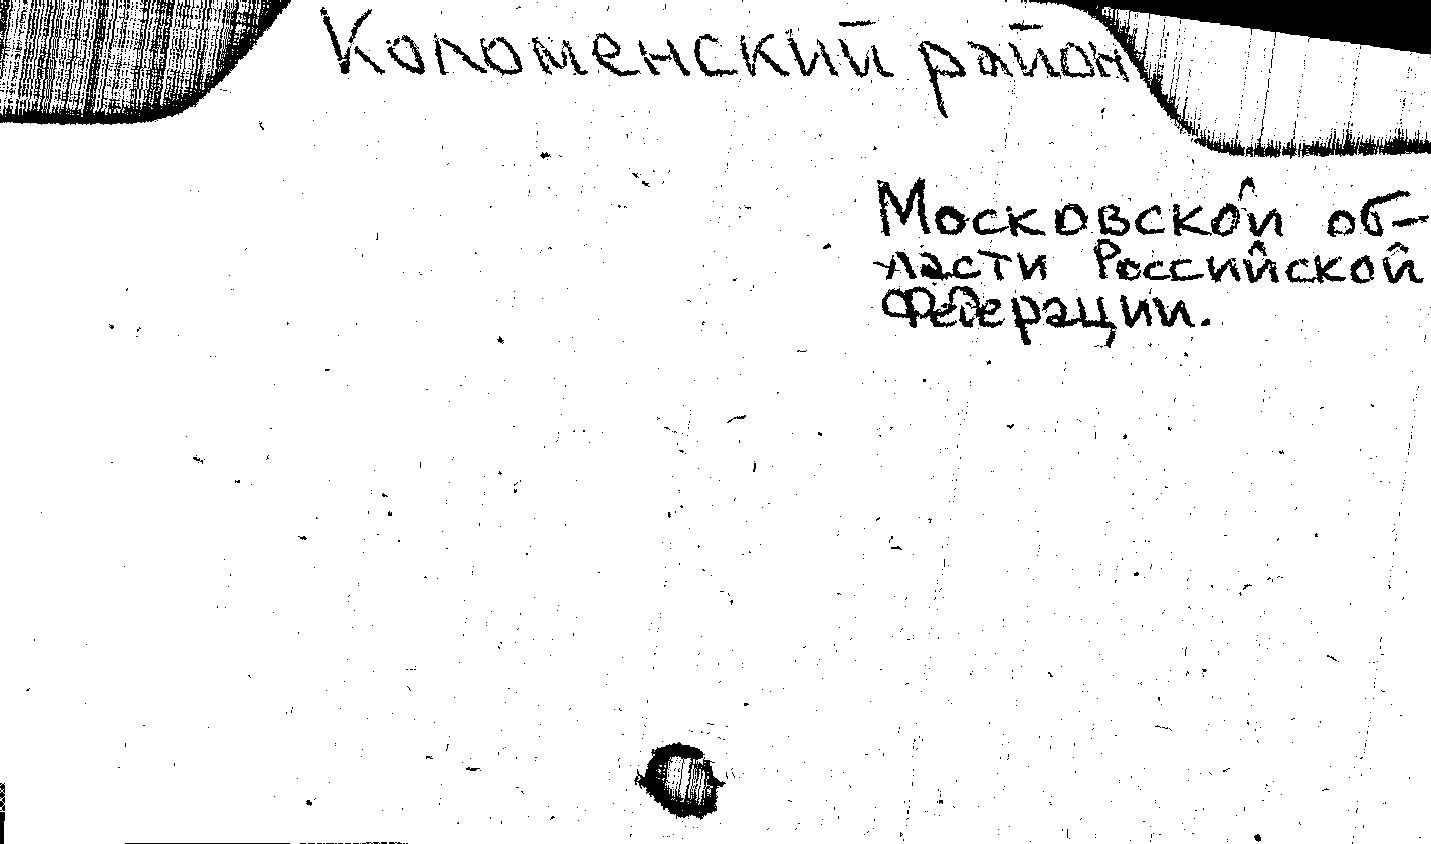 Коломенский район
Московской об-
ласти Российской
Федерации.